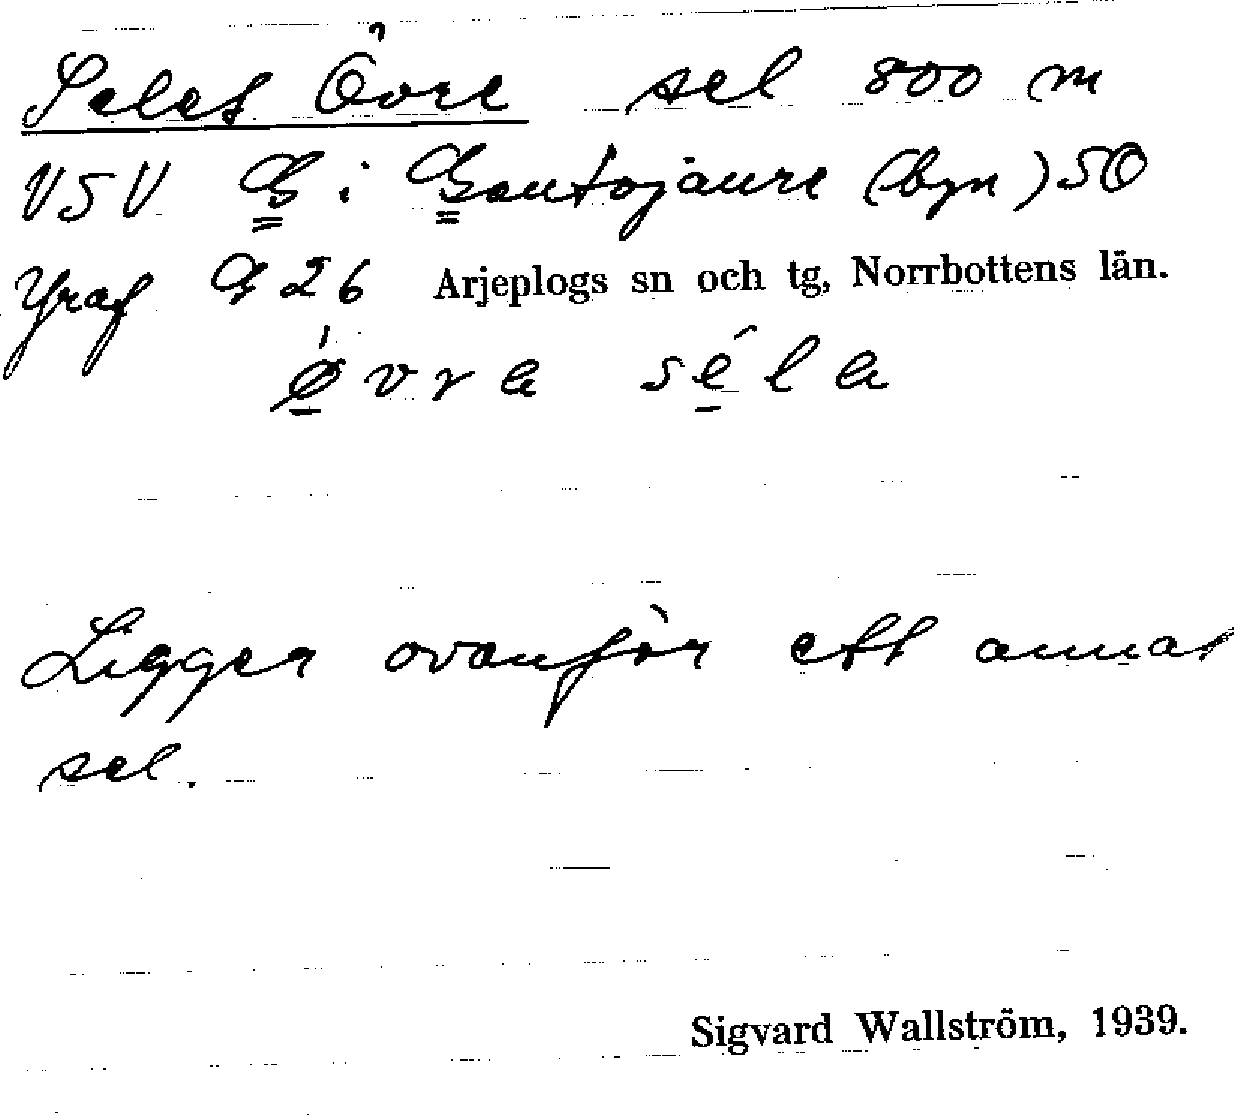 Selet Övre sel 800 m
VSV G i Gautojaure (byn) 50
Yraf G 26 Arjeplogs sn och tg, Norrbottens län.
ǿ̱vra sé̱la
Ligger ovanför ett annat
sel.
Sigvard Wallström, 1939.